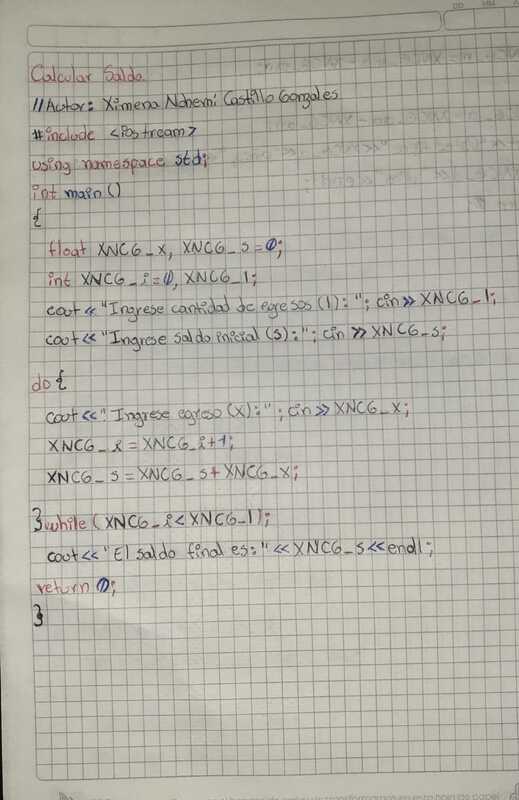 Calcular Saldo
//Autor: Ximena Nohemi Castillo Gonzales
#include <iostream>
using namespace std;
int main()
{
float XNCG_x, XNCG_s=0;
int XNCG_i=0, XNCG_l;
cout<<"Ingrese cantidad de egresos (l):"; cin>>XNCG_l;
cout<<"Ingrese saldo inicial (s):"; cin>>XNCG_s;
do{
cout<<"Ingrese egreso (x):"; cin>>XNCG_x;
XNCG_i=XNCG_i+1;
XNCG_s=XNCG_s+XNCG_x;
}while(XNCG_i<XNCG_l);
cout<<"El saldo final es:"<<XNCG_s<<endl;
return 0;
}